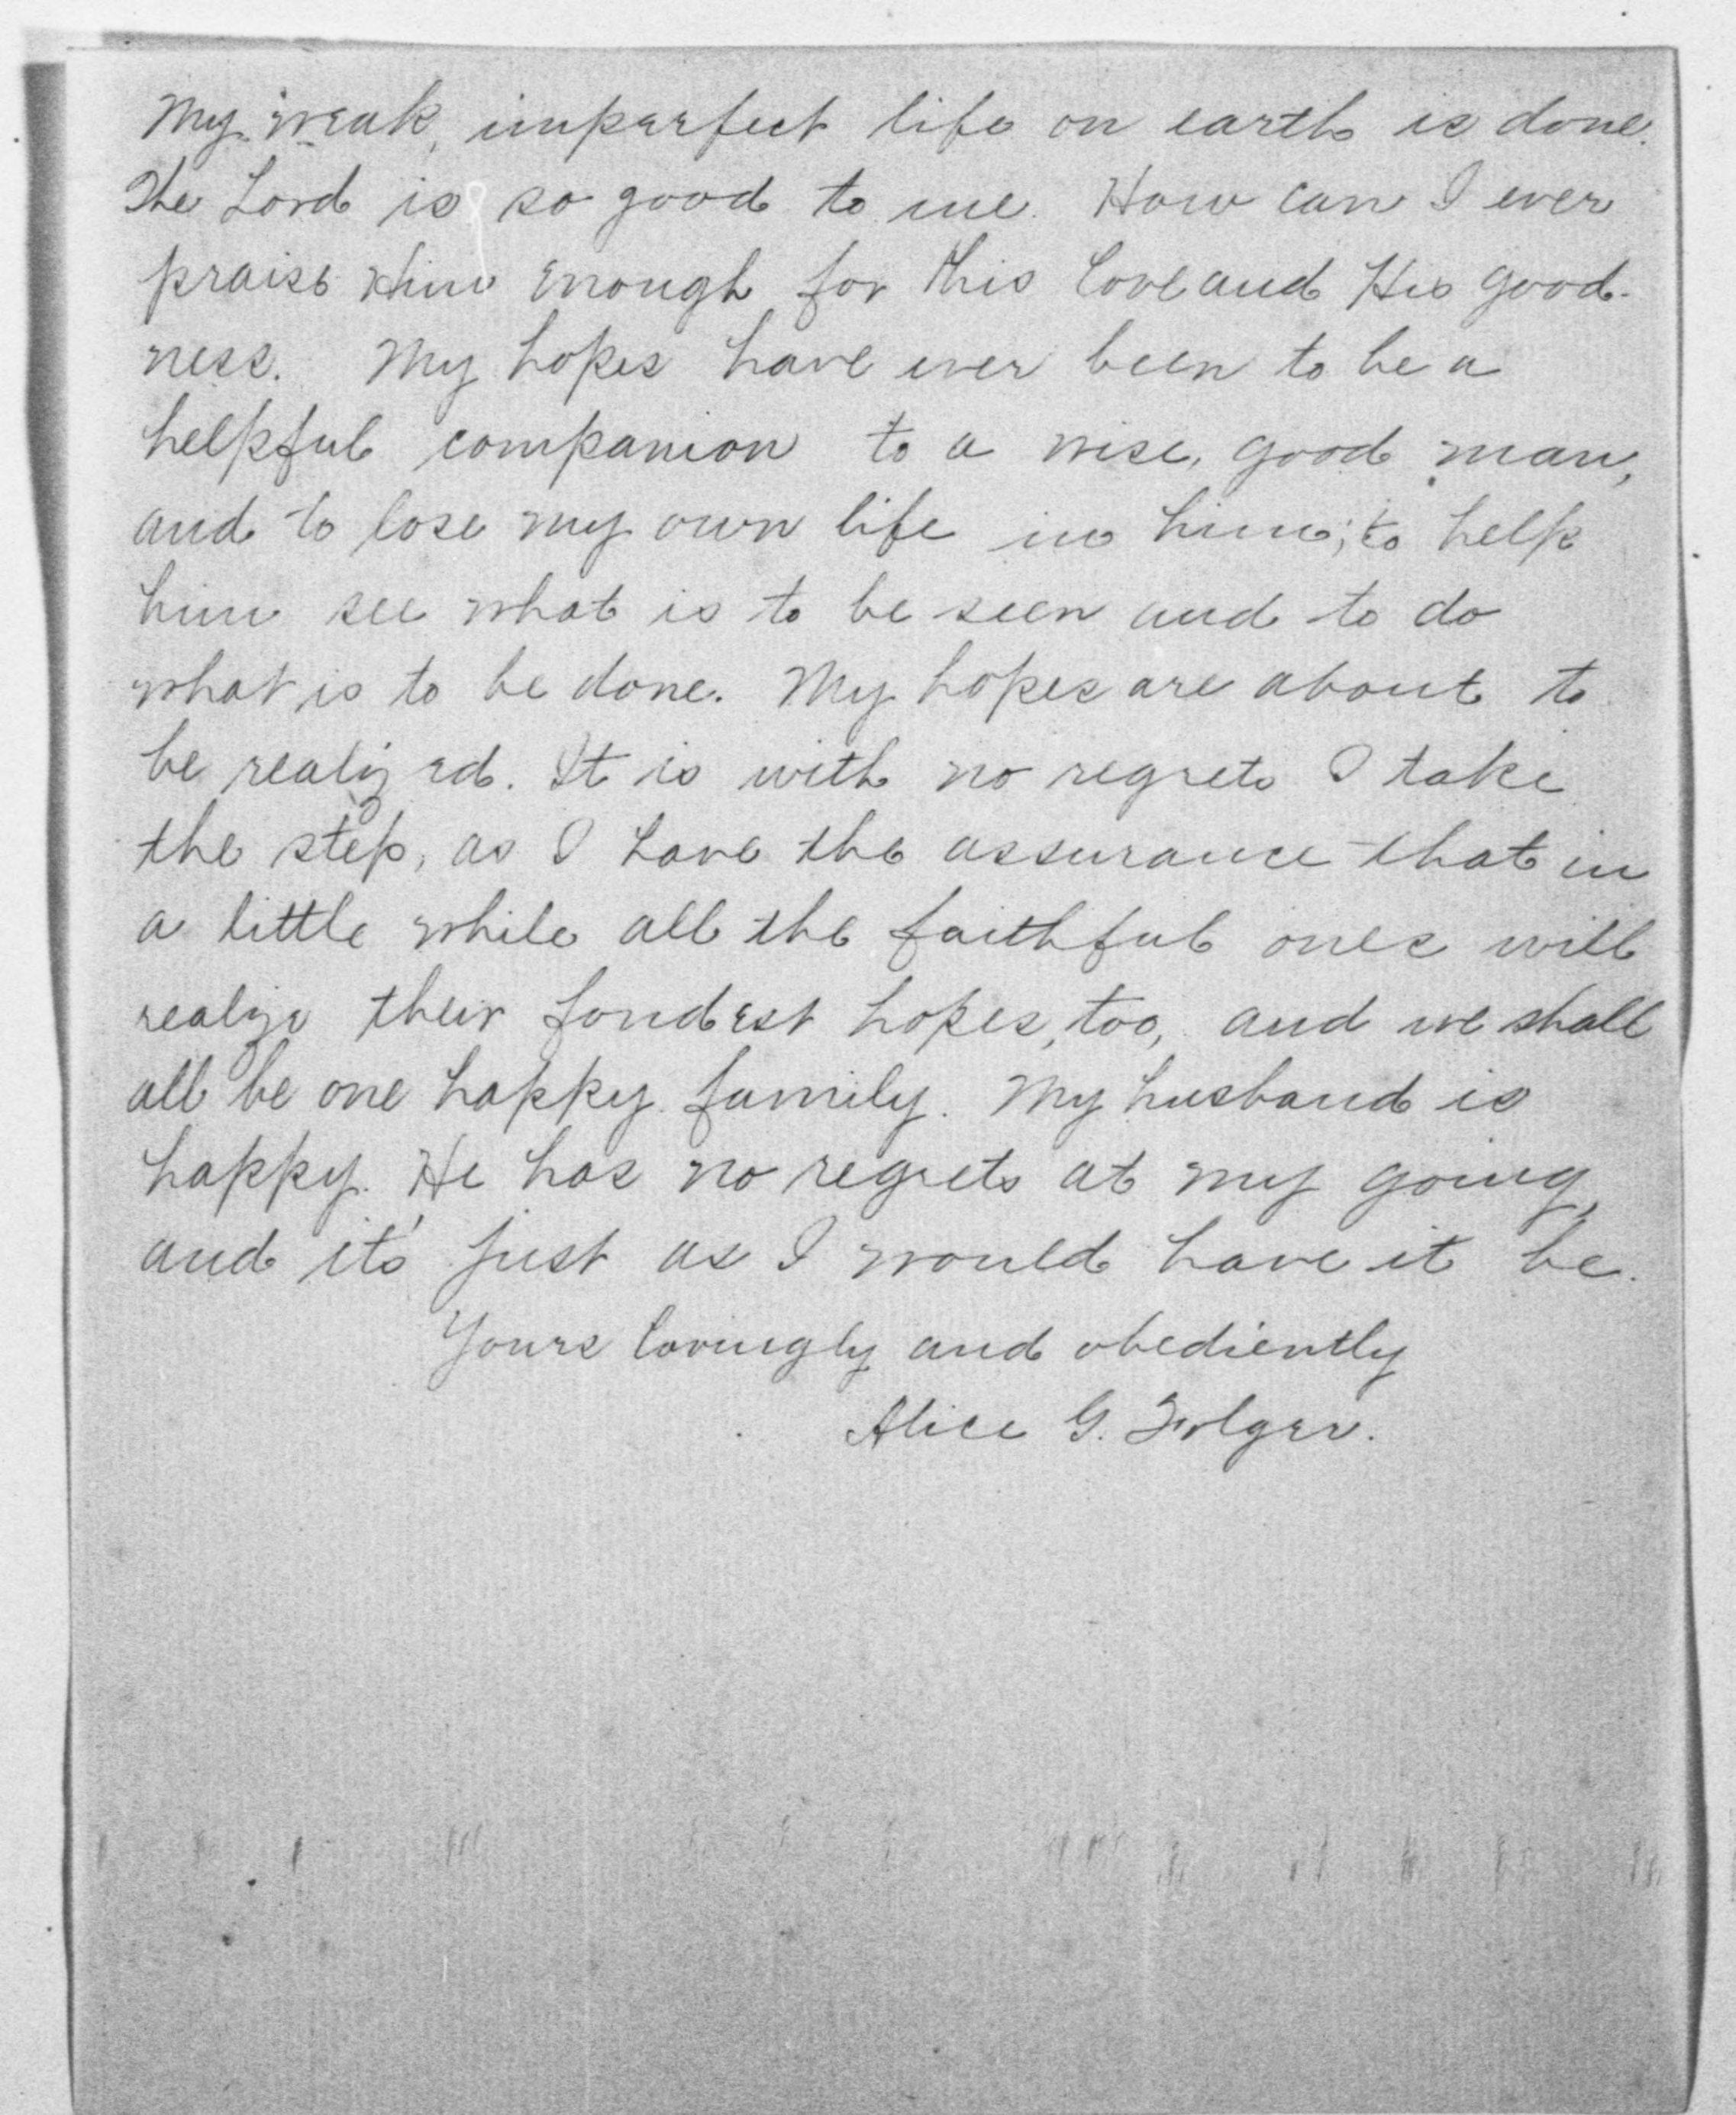 My weak, imperfect life on earth is done.
The Lord is so good to me. How can I ever
praise Him enough for this love and His good-
ness. My hopes have ever been to be a
helpful companion to a wise, good man,
and to lose my own life in him; to help
him see what is to be seen and to do
what is to be done. My hopes are about to
be realized. It is with no regrets I take
the step, as I have the assurance that in
a little while all the faithful ones will
realize their fondest hopes, too, and we shall
all be one happy family. My husband is
happy. He has no regrets at my going,
and it's just as I would have it be.
Yours lovingly and obediently
Alice G. Folger.